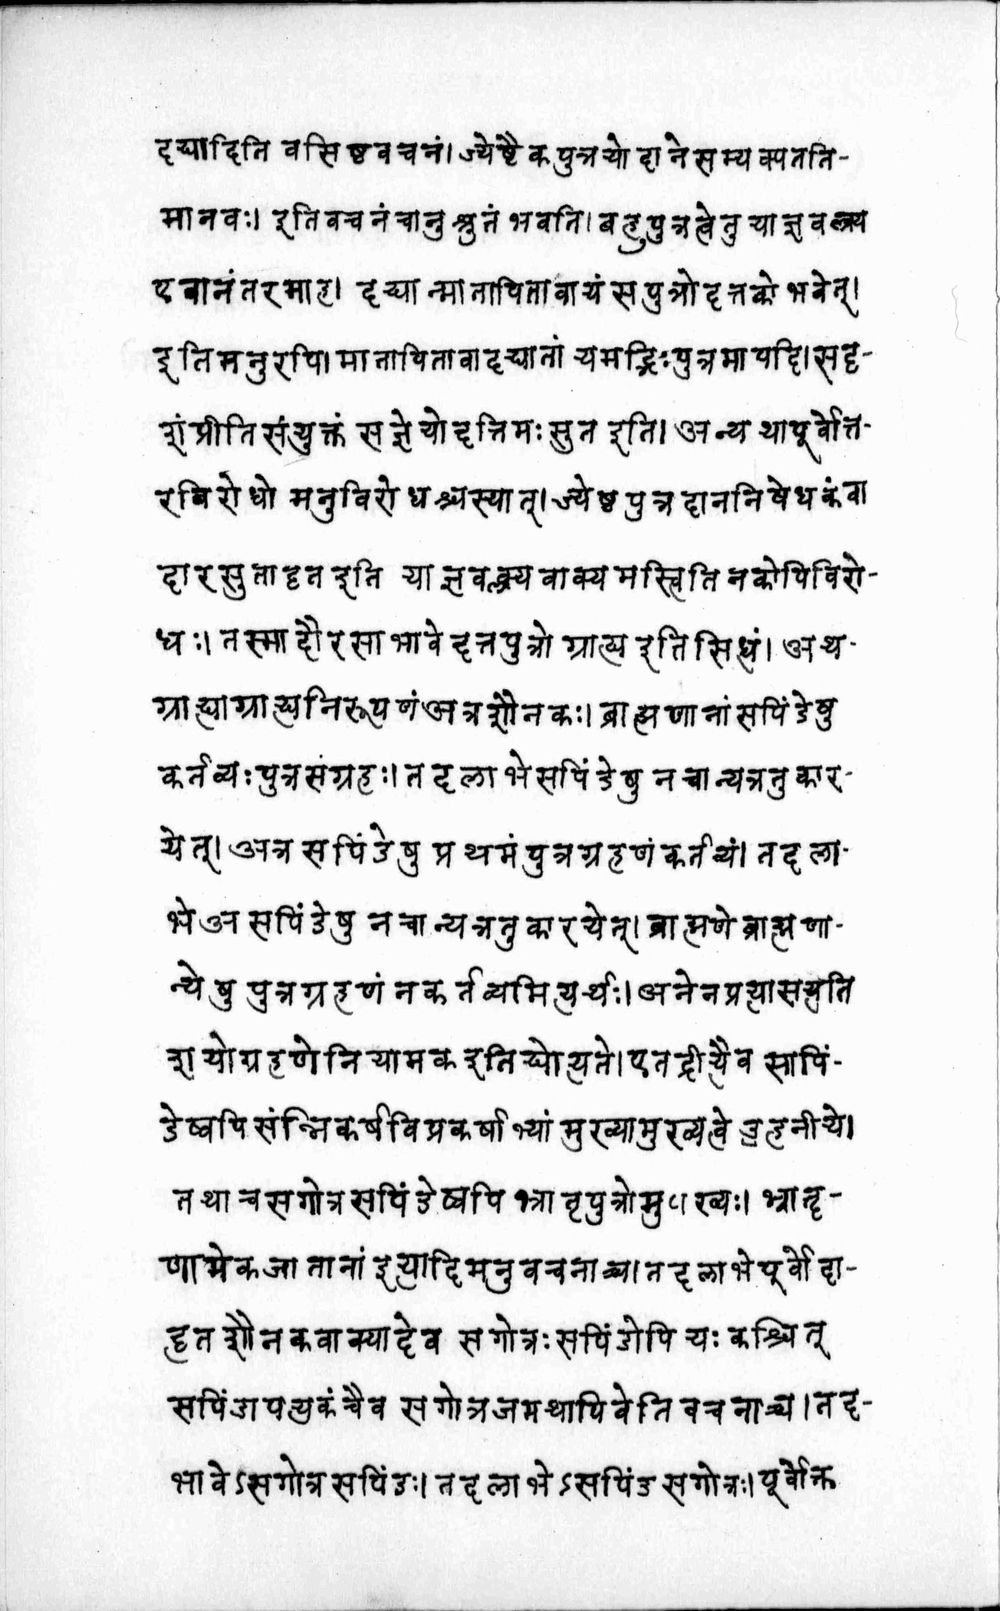 दद्यादिति वसिष्ठवचनं। ज्येष्ठैकपुत्रयोर्दाने सम्यक्पतति-
मानवः। इतिवचनंचानुश्रुतं भवति। बहुपुत्रत्वेतु याज्ञवल्क्य
एवानंतरमाह। दद्यान्मातापितावायं सपुत्रो दत्तको भवेत्।
इतिमनुरपि। मातापितावादद्यातां यमद्भिः पुत्रमापदि। सदृ-
शं प्रीतिसंयुक्तं सज्ञेयोदत्तिमः सुत इति। अन्यथापूर्वोत्त-
रविरोधो मनुविरोधश्चस्यात्। ज्येष्ठपुत्रदाननिषेधकंवा
दारसुतादृत इति याज्ञवल्क्यवाक्यमस्त्विति नकोपिविरो-
धः। तस्मादौरसाभावे दत्तपुत्रो ग्राह्य इति सिद्धं। अथ-
ग्राह्याग्राह्यनिरूपणं अत्रशौनकः। ब्राह्मणानां सपिंडेषु
कर्तव्यः पुत्रसंग्रहः। तदलाभेसपिंडेषु नचान्यत्रतुकार-
येत्। अत्र सपिंडेषु प्रथमं पुत्रग्रहणंकर्तव्यं। तदला-
भे असपिंडेषु नचान्यत्रतुकारयेत्। ब्राह्मणे ब्राह्मणा-
न्येषु पुत्रग्रहणं नकर्तव्यमित्यर्थः। अनेनप्रत्यासत्यति
शयोग्रहणेनियामक इति द्योत्यते। एतद्रीत्यैव सापिं-
डेष्वपि संन्निकर्षविप्रकर्षाभ्यां मुख्यामुख्यत्वे उहनीये।
तथाचसगोत्रसपिंडेष्वपि भ्रातृपुत्रोमुाख्यः। भ्रातृ-
णामेकजातानां इत्यादिमनुवचनाच्च। तदलाभेपूर्वोदा-
हृत शौनकवाक्यादेव सगोत्रः सपिंडोपि यः कश्चित्
सपिंडापत्युकंचैव सगोत्रजमथापिवेति वचनाच्च। तद-
भावेऽसगोत्रसपिंडः। तदलाभेऽसपिंडसगोत्रः। पूर्वोक्त